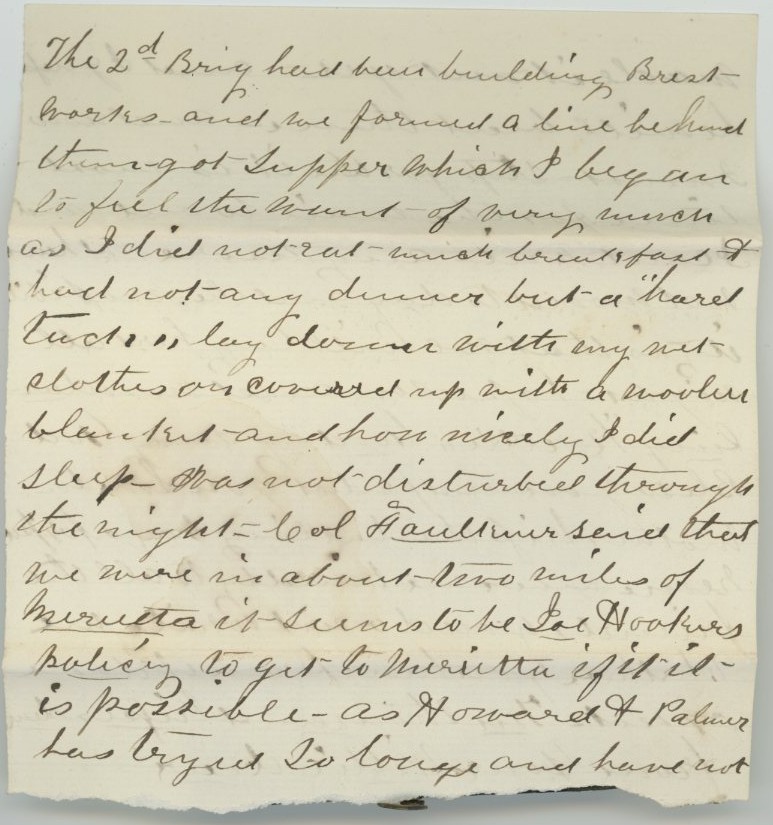 The 2d Brig had been building Brest
works - and we formed a line behind
them - got supper which I began
to feel the want - of very much
as I did not eat - much breakfast &
had not - any dinner but a "hard
tack" lay down with my wet
clothes on covered up with a woolen
blanket - and how nicely I did
sleep - was not disturbed through
the night - Col Faulkner said that
we were in about - two miles of
Merietta it seems to be Joe Hookers
policiy to get to Merietta if it it -
is possible - as Howard & Palmer
has tryed so longe and have not